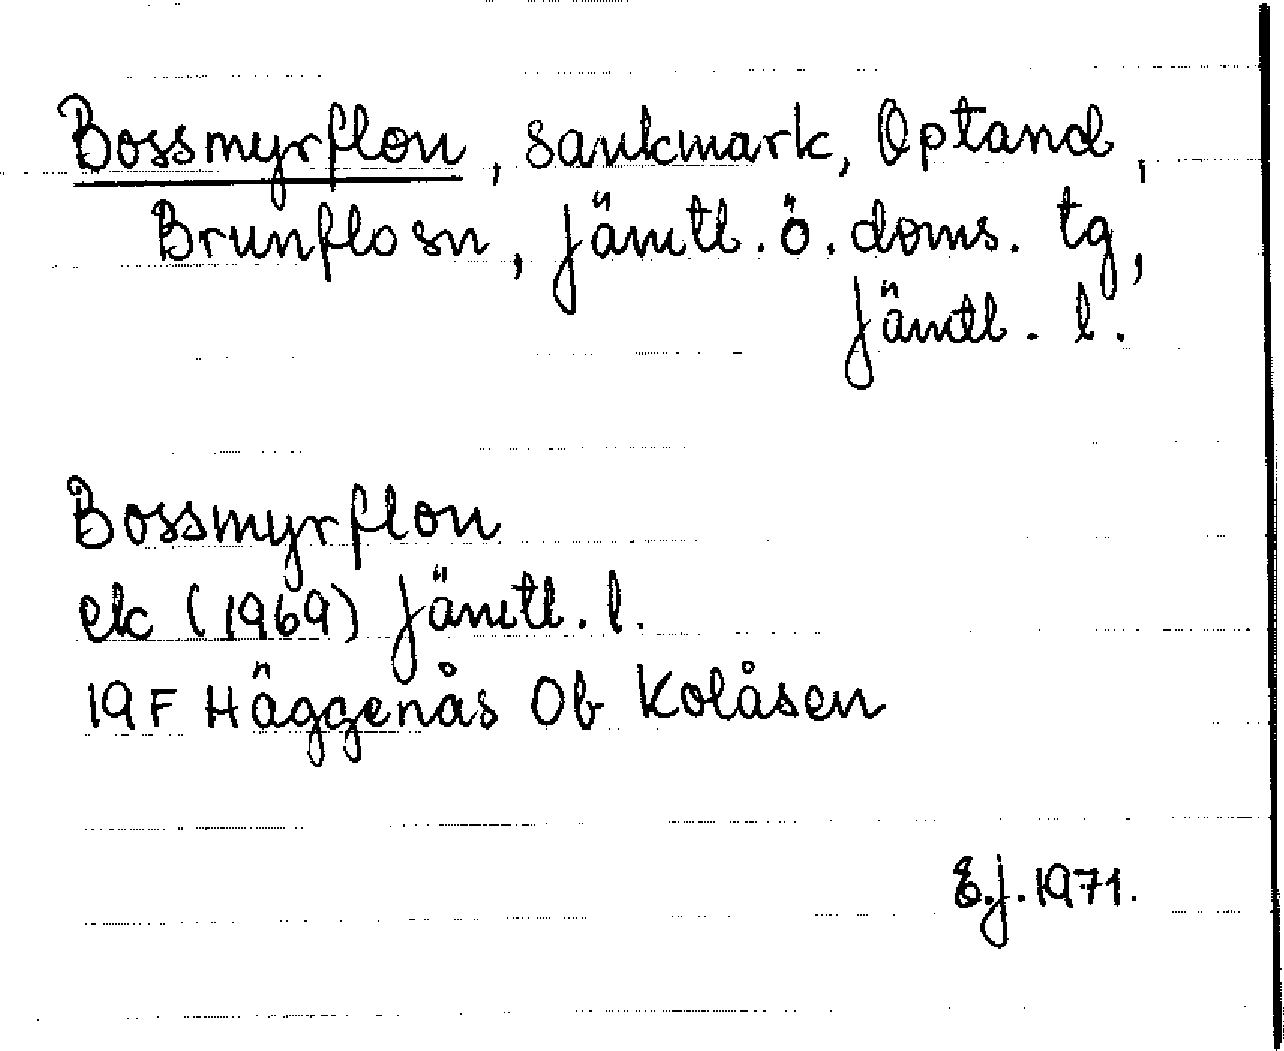 Bossmyrflon, sankmark, Optand,
Brunflo sn, Jämtl. ö. doms. tg,
Jämtl. l.
Bossmyrflon
ek (1969) Jämtl. l.
19F Häggenås 0b Kolåsen
E.J. 1971.